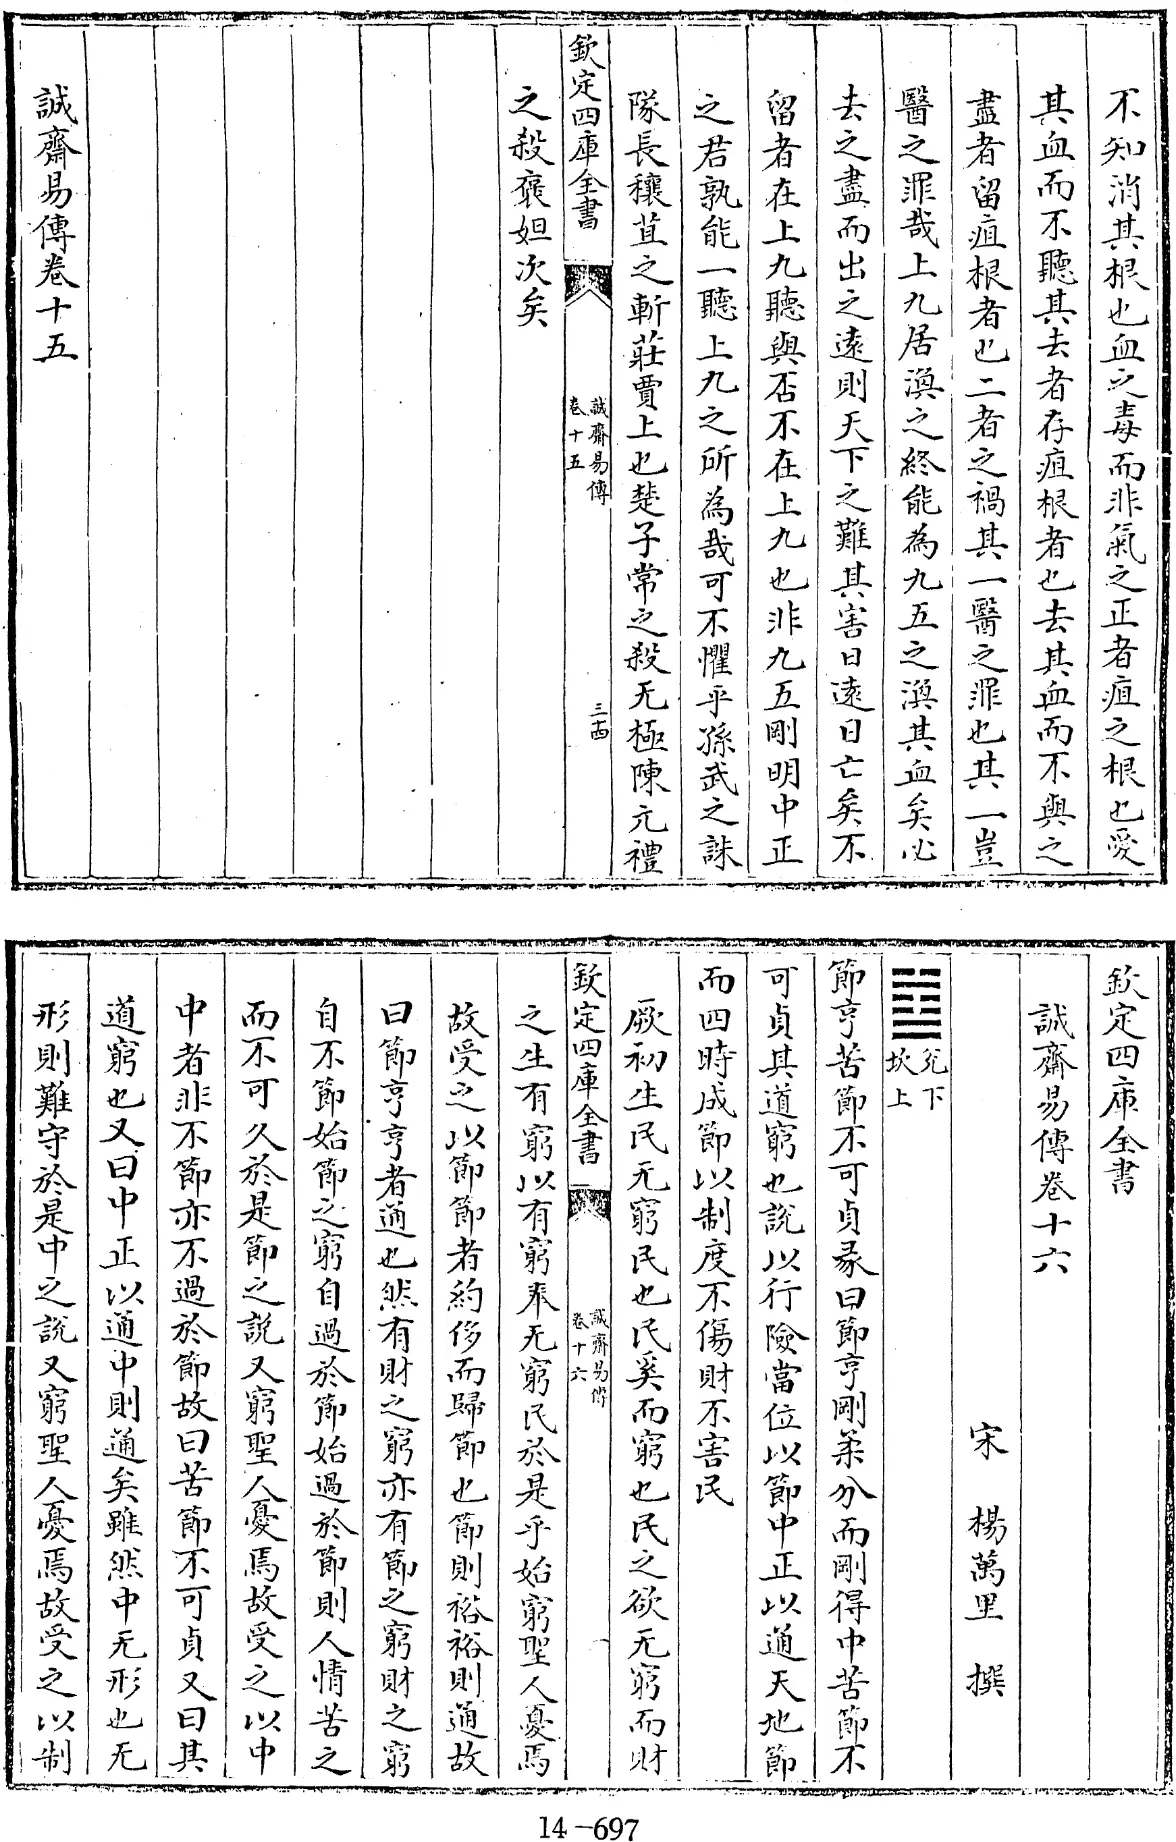 不知消其根也血之毒而非氣之正者疽之根也愛
其血而不聽其去者存疽根者也去其血而不與之
盡者留疽根者也二者之禍其一醫之罪也其一豈
醫之罪哉上九居渙之終能為九五之渙其血矣必
去之盡而出之遠則天下之難其害日遠日亡矣不
留者在上九聽與否不在上九也非九五剛明中正
之君孰能一聽上九之所為哉可不懼乎孫武之誅
隊長穰苴之斬莊賈上也楚子常之殺无極陳元禮
欽定四庫全書
誠齋易傳
卷十五
三十四
之殺褒妲次矣
誠齋易傳卷十五
欽定四庫全書
誠齋易傳卷十六
宋 楊萬里 撰
兌下
坎上
節亨苦節不可貞彖曰節亨剛柔分而剛得中苦節不
可貞其道窮也說以行險當位以節中正以通天地節
而四時成節以制度不傷財不害民
厥初生民无窮民也民奚而窮也民之欲无窮而財
欽定四庫全書
誠齋易傳
卷十六
一
之生有窮以有窮奉无窮民於是乎始窮聖人憂焉
故受之以節節者約侈而歸節也節則裕裕則通故
曰節亨亨者通也然有財之窮亦有節之窮財之窮
自不節始節之窮自過於節始過於節則人情苦之
而不可久於是節之說又窮聖人憂焉故受之以中
中者非不節亦不過於節故曰苦節不可貞又曰其
道窮也又曰中正以通中則通矣雖然中无形也无
形則難守於是中之說又窮聖人憂焉故受之以制
14-697